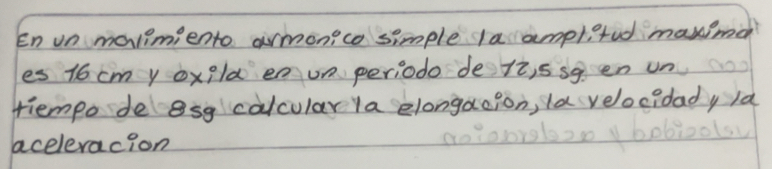 En un movimiento armonico simple la amplitud maxima
es 16 cm y oxila en un periodo de 12,5 sg. en un
tiempo de 8sg calcular la elongacion, la velocidad y la
aceleracion